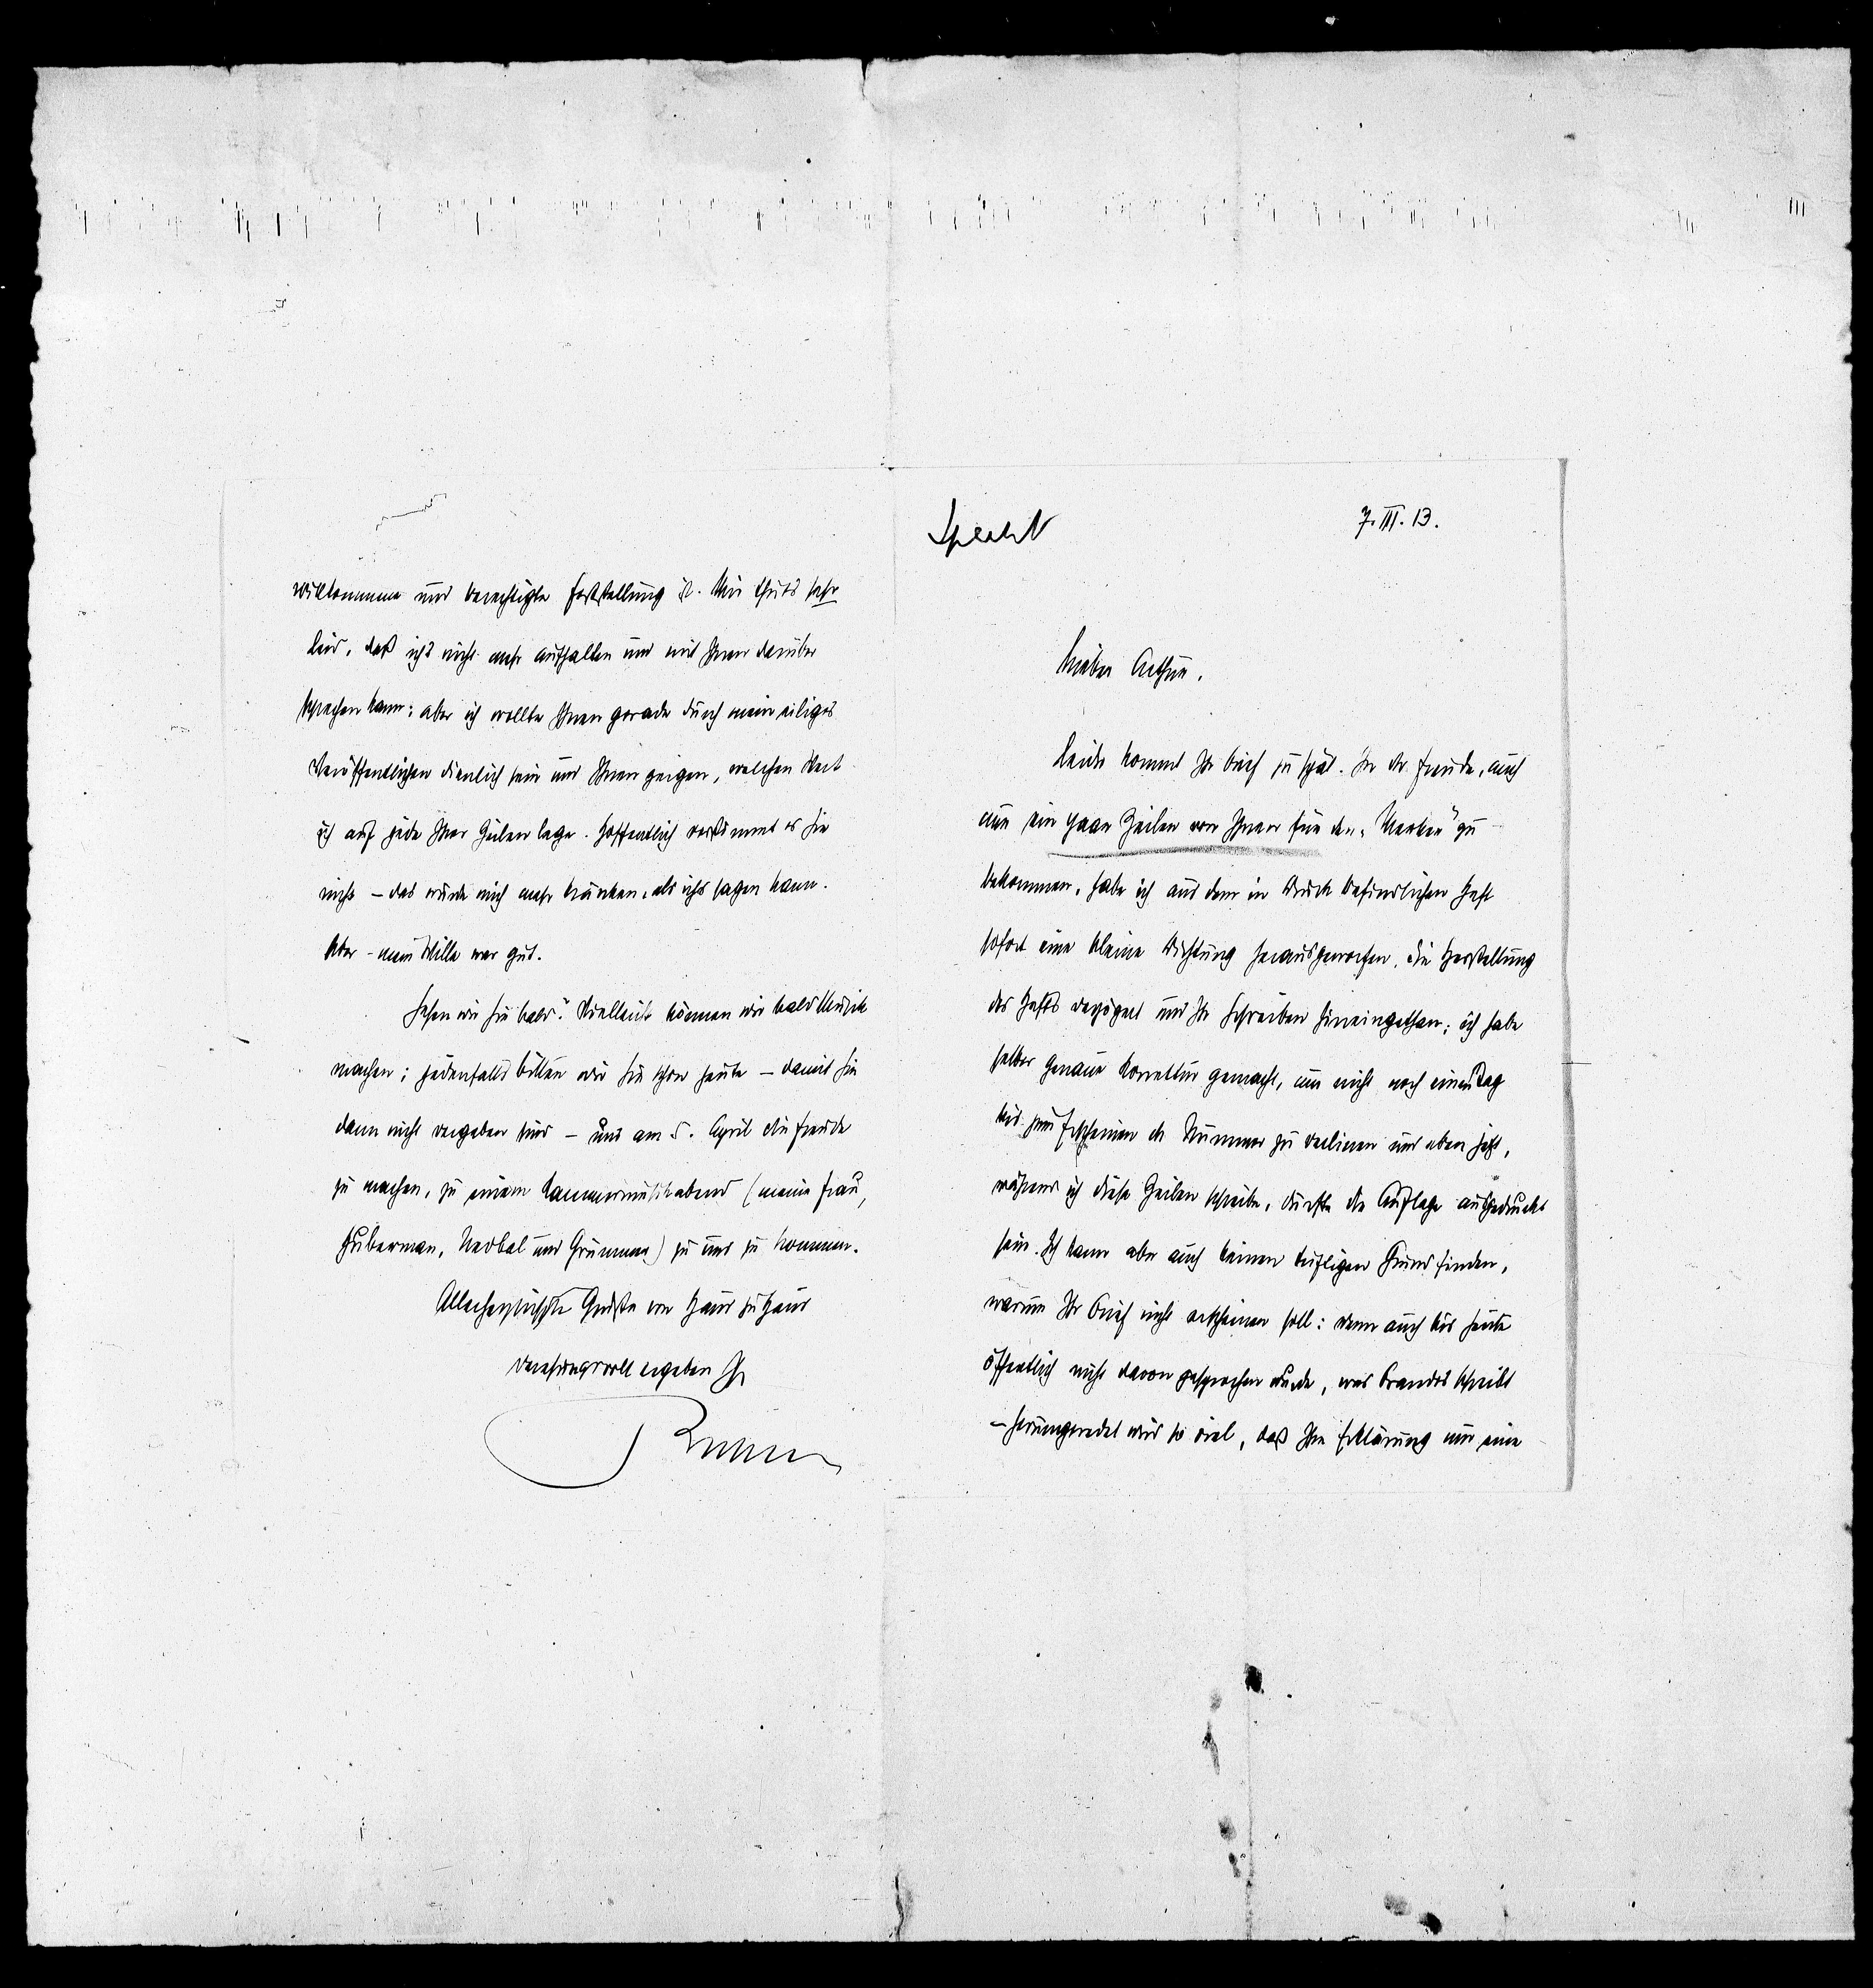 Specht
7. III. 13.
Lieber Arthur,
leider kommt Ihr Brief zu spät. In der Freude, auch
nur ein paar Zeilen von Ihnen für den „Merker“ zu
bekommen, habe ich aus dem in Druck befindlichen Heft
sofort eine kleine Dichtung herausgeworfen, die Herstellung
des Hefts verzögert und Ihr Schreiben hineingethan; ich habe
selber genaue Korrektur gemacht, um nicht noch einen Tag
bis zum Erscheinen der Nummer zu verlieren und eben jetzt,
während ich diese Zeilen schreibe, dürfte die Auflage ausgedruckt
sein. Ich kann aber auch keinen triftigen Grund finden,
warum Ihr Brief nicht erscheinen soll: wenn auch bis heute
öffentlich nicht davon gesprochen wurde, was Brandes schreibt
– herumgeredet wird so viel, daß Ihre Erklärung nur eine
willkommene und berechtigte Feststellung ist. Mir thuts sehr
leid, daß ichs nicht mehr aufhalten und mit Ihnen darüber
sprechen kann; aber ich wollte Ihnen gerade durch mein eiliges
Veröffentlichen dienlich sein und Ihnen zeigen, welchen Wert
ich auf jede Ihrer Zeilen lege. Hoffentlich verstimmt es Sie
nicht – das würde mich mehr kränken, als ichs sagen kann.
Aber – mein Wille war gut.
Sehen wir Sie bald? Vielleicht können wir bald Musik
machen; jedenfalls bitten wir Sie schon heute – damit Sie
dann nicht vergeben sind – uns am 5. April die Freude
zu machen, zu einem Kammermusikabend (meine Frau,
Huberman, Nedbal und Grümmer) zu uns zu kommen.
Allerherzlichste Grüße von Haus zu Haus
verehrungsvoll ergeben Ihr